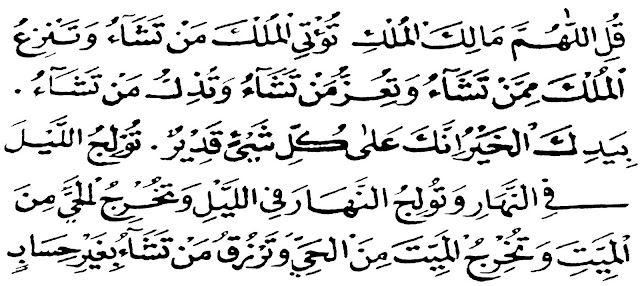 قُلِ اللّٰهُمَّ مَالِكَ الْمُلْكِ تُؤْتِي الْمُلْكَ مَنْ تَشَآءُ وَتَنْزِعُ
الْمُلْكَ مِمَّنْ تَشَآءُ وَتُعِزُّ مَنْ تَشَآءُ وَتُذِلُّ مَنْ تَشَآءُ .
بِيَدِكَ الْخَيْرُ اِنَّكَ عَلٰى كُلِّ شَيْئٍ قَدِيْرٌ . تُوْلِجُ اللَّيْلَ
فِى النَّهَارِ وَتُوْلِجُ النَّهَارَ فِى اللَّيْلِ وَتُخْرِجُ الْحَيَّ مِنَ
الْمَيِّتِ وَتُخْرِجُ الْمَيِّتَ مِنَ الْحَيِّ وَتَرْزُقُ مَنْ تَشَآءُ بِغَيْرِ حِسَابٍ